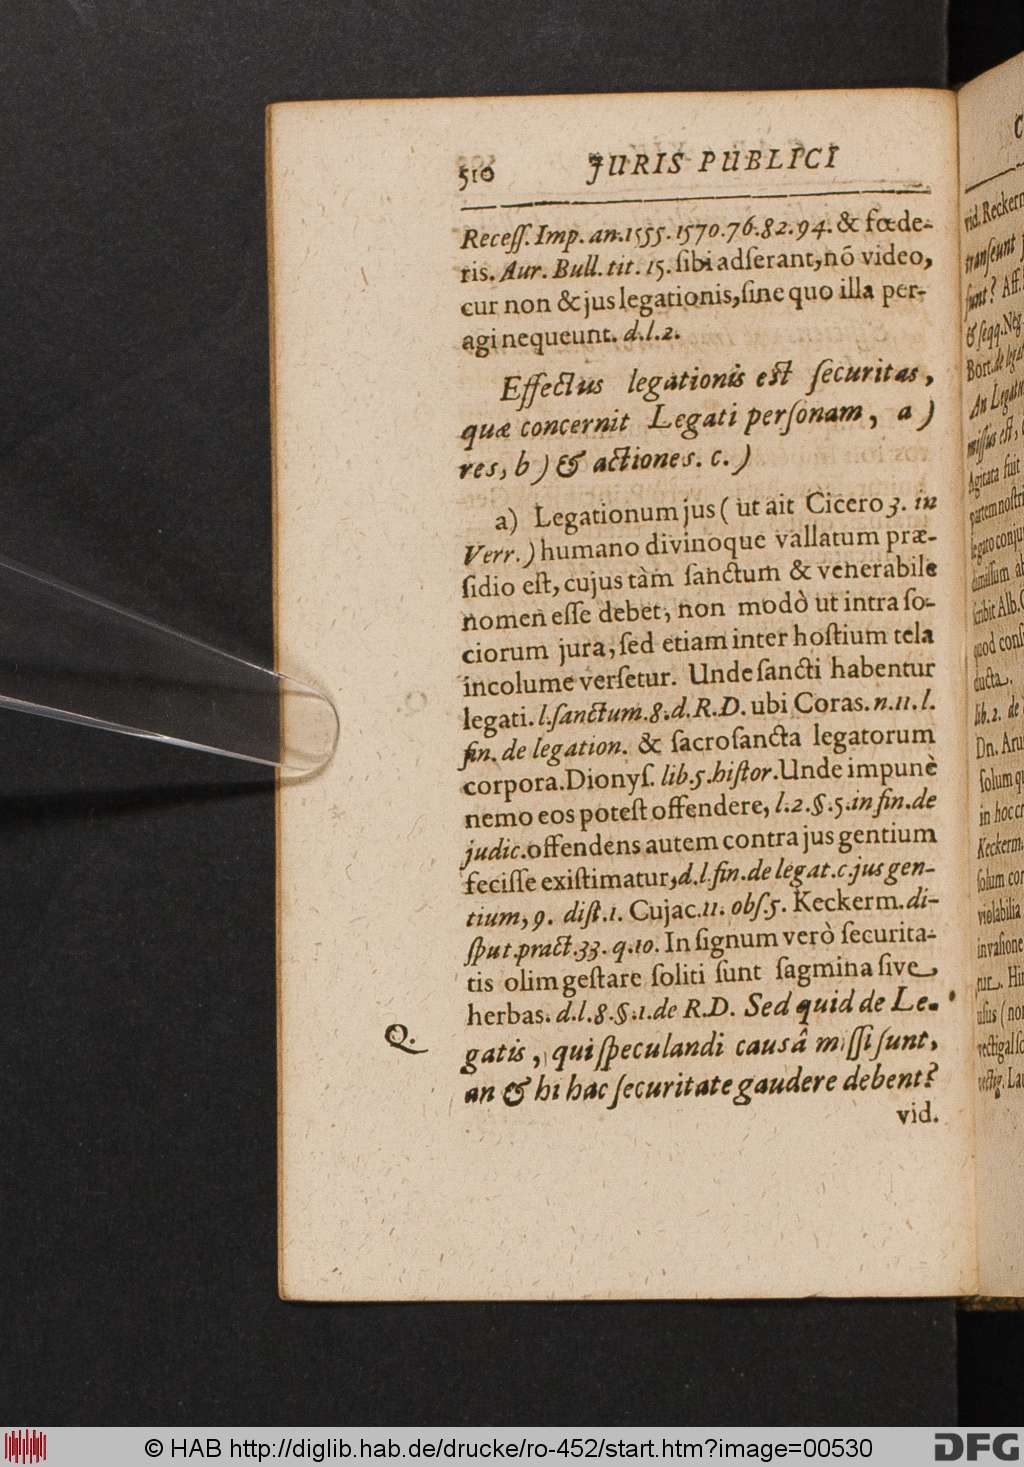 510 JURIS PUBLICI
Receſſ. Imp. an. 1555. 1570. 76. 82. 94. & fœde-
ris. Aur. Bull. tit. 15. ſibi adſerant, nō video,
cur non & jus legationis, ſine quo illa per-
agi nequeunt. d. l. 2.
Effectus legationis est ſecuritas,
quæ concernit Legati perſonam, a )
res, b ) & actiones. c. )
a) Legationum jus ( ut ait Cicero 3. in
Verr. ) humano divinoque vallatum præ-
ſidio eſt, cujus tàm ſanctum & venerabile
nomen eſſe debet, non modò ut intra ſo-
ciorum jura, ſed etiam inter hoſtium tela
incolume verſetur. Unde ſancti habentur
legati. l. ſanctum. 8. d. R. D. ubi Coras. n. 11. l.
fin. de legation. & ſacroſancta legatorum
corpora. Dionyſ. lib. 5. hiſtor. Unde impunè
nemo eos poteſt offendere, l. 2. §. 5. in fin. de
judic. offendens autem contra jus gentium
feciſſe exiſtimatur, d. l. fin. de legat. c. jus gen-
tium, 9. diſt. 1. Cujac. 11. obſ. 5. Keckerm. di-
ſput. pract. 33. q. 10. In ſignum verò ſecurita-
tis olim geſtare ſoliti ſunt ſagmina ſive
herbas. d. l. 8. §. 1. de R. D. Sed quid de Le-
Q. gatis, qui ſpeculandi causâ miſſi ſunt,
an & hi hac ſecuritate gaudere debent?
vid.
C
vid. Reckerm
tranſeunt
ſunt? Aff.
& ſeqq. Neg.
Bort. de legat
An Legatu
miſſus eſt,
Agitata fuit
partem noſtri
legato conju
dimiſſum ab
ſcribit Alb. G
quod conſ
ducta.
lib. 2. de
Dn. Aru
ſolum q
in hoc c
Keckerm.
ſolum co
violabilia
invaſione
tur. Hi
uſus ( no
vectigal ſo
vectig. Lau
© HAB http://diglib.hab.de/drucke/ro-452/start.htm?image=00530
DFG